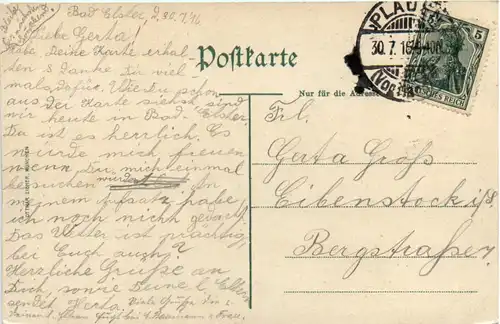 Bad Elster, d. 30.7.16
Liebe Gerta!
Habe Deine Karte erhal-
ten Danke Dir viel-
mals dafür. Wie Du schon
aus der Karte siehst, sind
wir heute in Bad-Elster,
Da ist es herrlich. Es
würde mich freuen
wenn Du mich einmal
besuchen würdest. In
meinem Aufsatz habe
ich noch nicht gedacht
Das Wetter ist prächtig,
bei Euch auch?
Herzliche Grüße an
Dich, sowie Deine l. Eltern
sendet Herta. Viele Grüße
Postkarte
Nur für die Adresse
PLAUEN
30.7.16
(VOGTL.)
5
DEUTSCHES REICH
Frl.
Gerta Groß
Eibenstock i.
Bergstraße 7